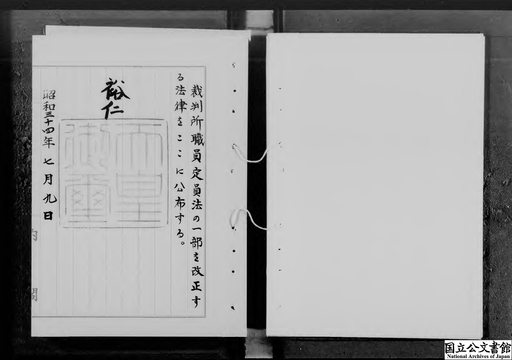 裁判所職員定員法の一部を改正す
る法律をここに公布する。
裕仁
天皇
御璽
昭和三十四年七月九日
内
閣
国立公文書館
National Archives of Japan